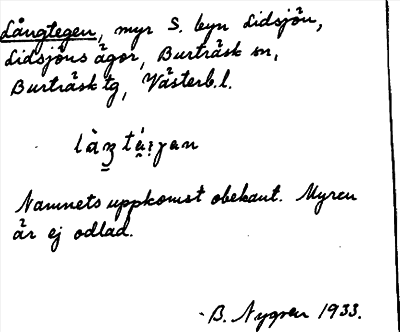 Långtegen, myr S. byn Lidsjön,
Lidsjöns ägor, Burträsk sn,
Burträsk tg, Västerb.l.
Namnets uppkomst obekant. Myren
är ej odlad.
B. Nygren 1933.